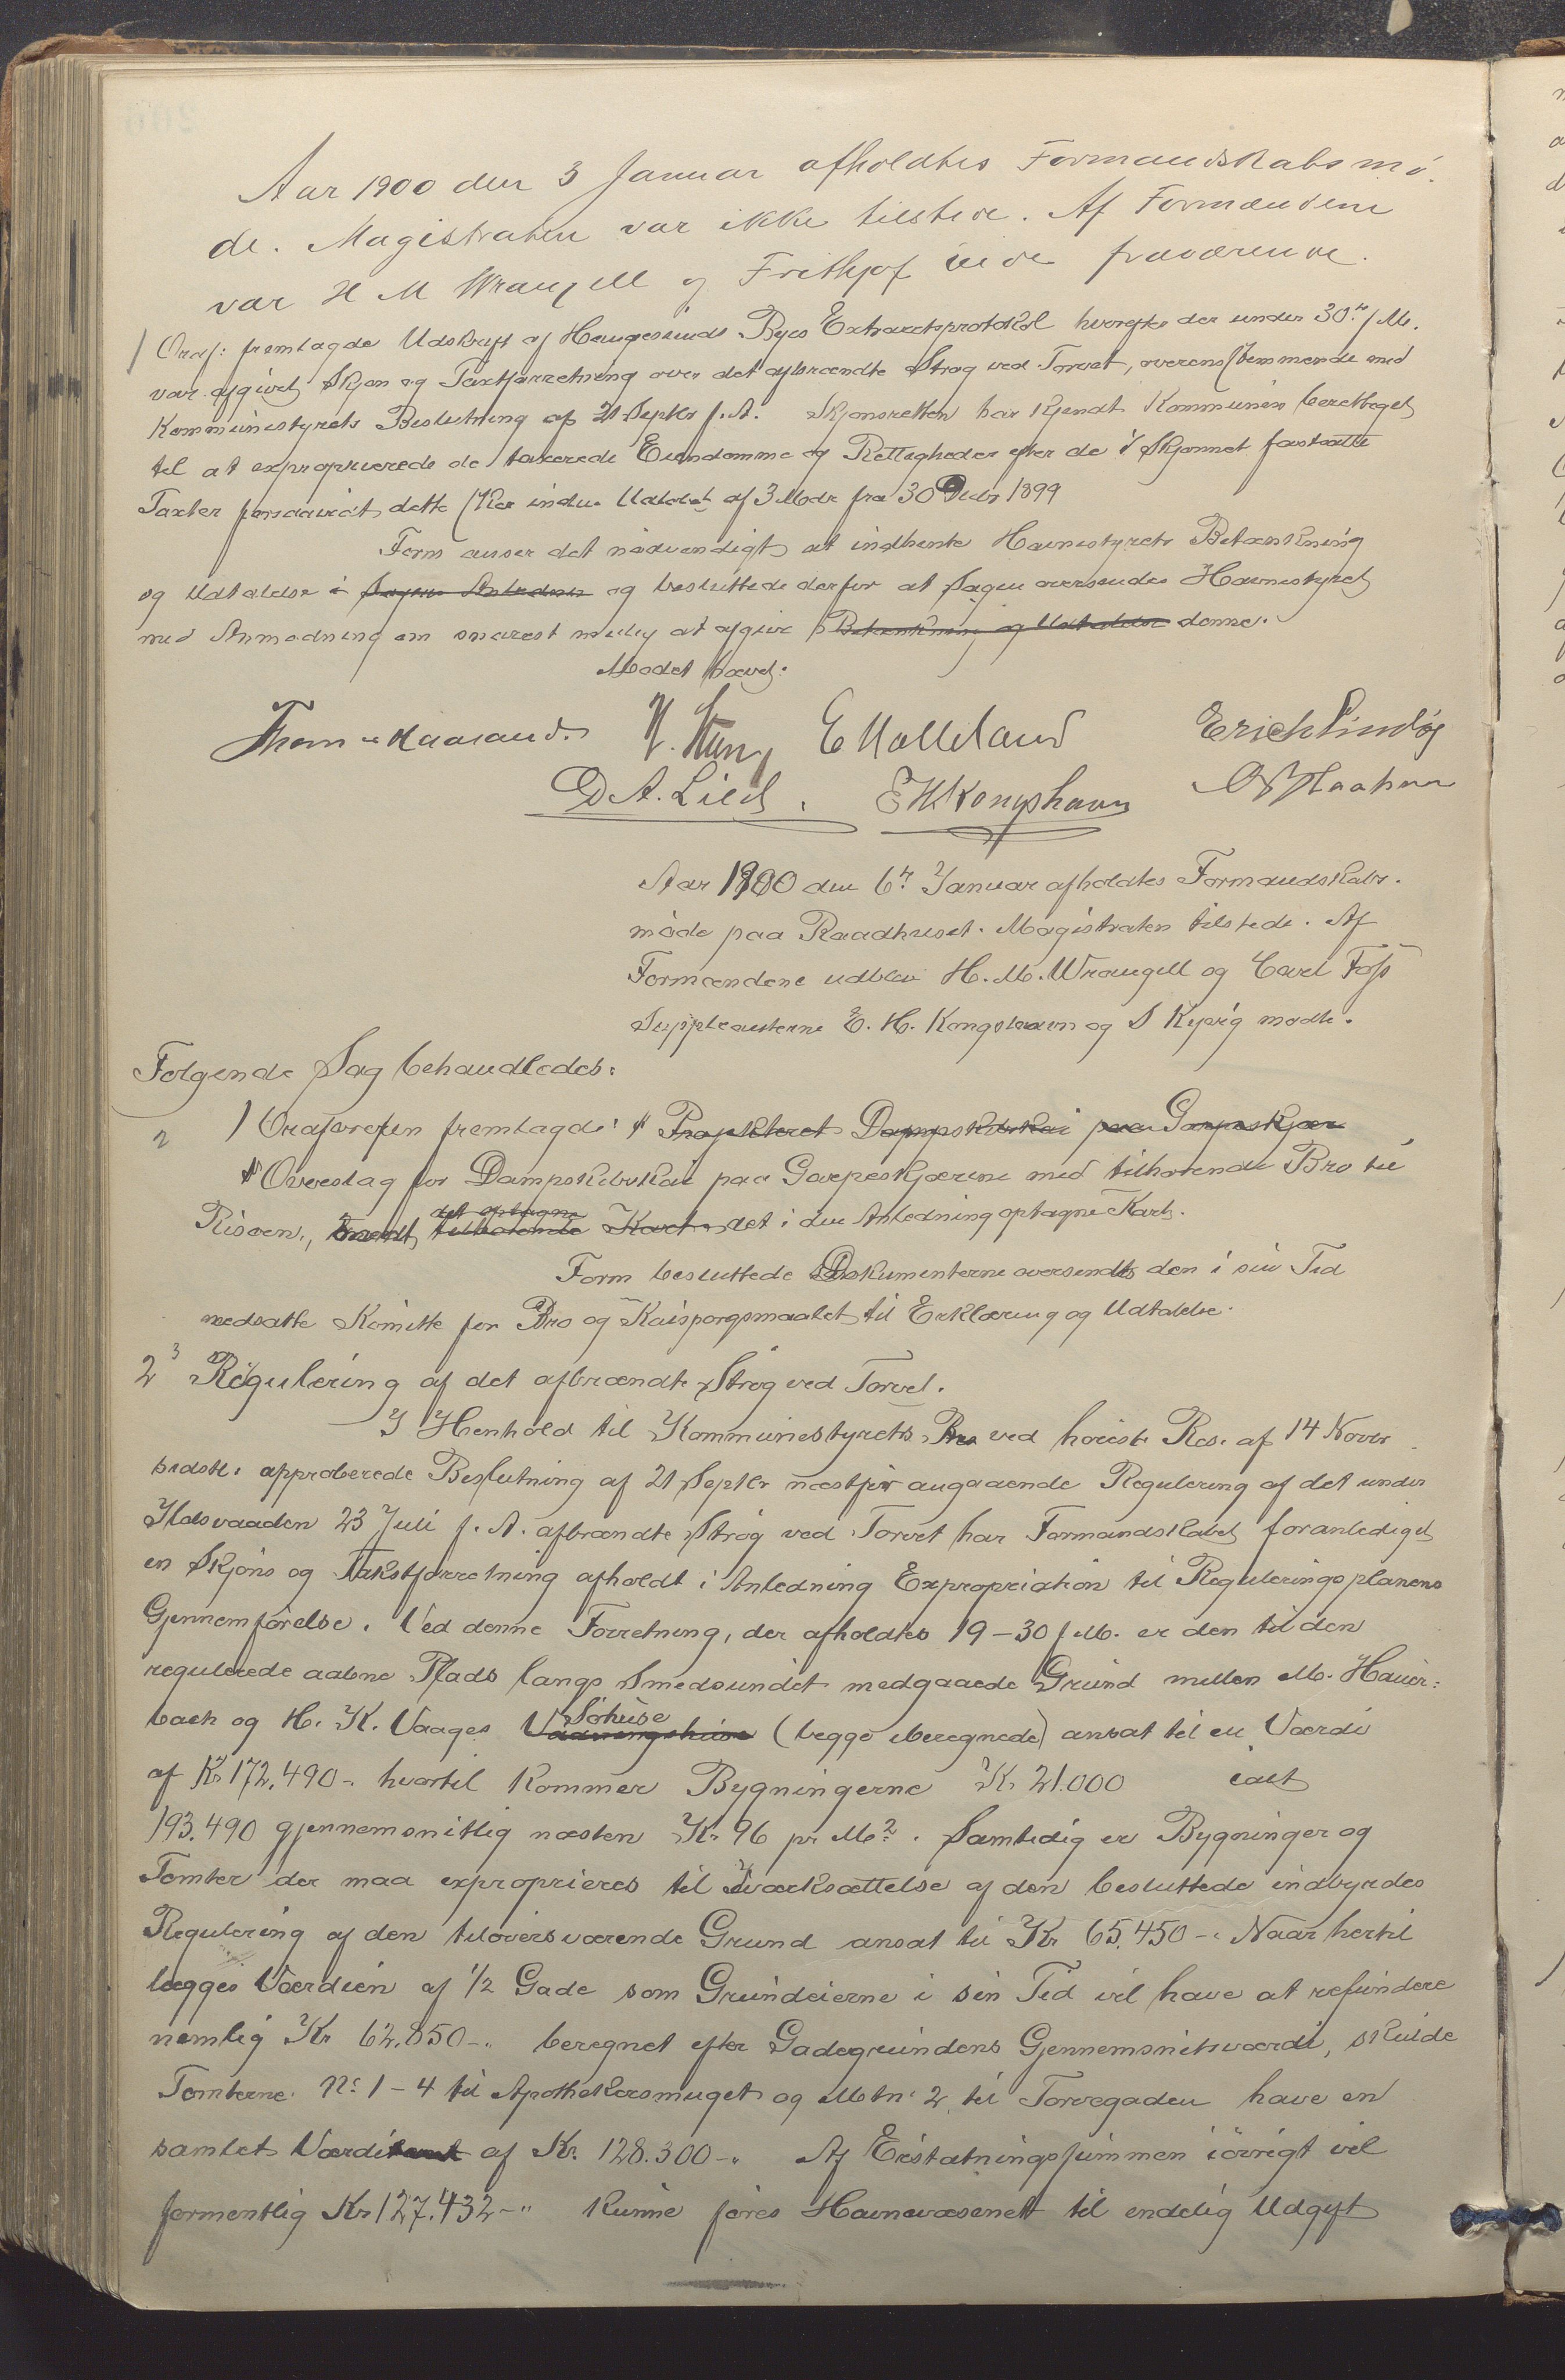 Aar 1900 den 3 Januar afholdtes Formandskabsmø-
de. Magistraten var ikke tilstede. Af Formændene
var H M Wrangell og Frithjof Eide fraværende.
1/ Ordf: fremlagde Udskrift af Haugesunds Byes Extraretsprotokol hvorefter der under 30te f. M.
var afgivet Skjøn og Taxtforretning over det afbrændte Strøg ved Torvet, overensstemmende med
Kommunestyrets Beslutning af 21 Septbr f. A. Skjønsretten har kjendt Kommunen berettiget
til at expropriere de taxerede Eiendomme og Rettigheder efter de i Skjønnet fastsatte
Taxter forsaavidt dette sker inden Udløbet af 3 Mdr fra 30 Decbr 1899
Form anser det nødvendigt at indhente Havnestyrets Betænkning
og Udtalelse i Sagens Anledning og besluttede derfor at Sagen oversendes Havnestyret
med Anmodning om snarest mulig at afgive Betænkning og Udtalelse denne.
Mødet hævet.
H. Stang E Halleland Erich Lindøe
D A. Lied. E H Kongshavn
Aar 1900 den 6te Januar afholdtes Formandskabs-
møde paa Raadhuset. Magistraten tilstede. Af
Formændene udblev H. M. Wrangell og Carl Foss
Suppleanterne E. H. Kongshavn og S Kyvig mødte.
Følgende Sag behandledes:
2 1/ Ordføreren fremlagde: Projekteret Dampskibskai paa Garpeskjær
Overslag for Dampskibskai paa Garpeskjærene med tilhørende Bro til
det optagne
Risøen, tilhørende Kart det i den Anledning optagne Kart.
Form besluttede Dokumenterne oversendes den i sin Tid
nedsatte Komitte for Bro og Kaispørgsmaalet til Erklæring og Udtalelse.
2 3 Regulering af det afbrændte Strøg ved Torvet.
I Henhold til Kommunestyrets Res ved høieste Res. af 14 Novbr
sidstl. approberede Beslutning af 21 Septbr næstfør angaaende Regulering af det under
Ildsvaaden 23 Juli f. A. afbrændte Strøg ved Torvet har Formandskabet foranlediget
en Skjøns og Takstforretning afholdt i Anledning Expropriation til Reguleringsplanens
Gjennemførelse. Ved denne Forretning, der afholdtes 19-30 f. M. er den til den
regulerede aabne Plads langs Smedsundet medgaaede Grund mellem M. Hauer-
Søhuse
bach og H. K. Vaages Vaaningshuse (begge iberegnede) ansat til en Værdi
af Kr 172.490- hvortil kommer Bygningerne Kr. 21.000 ialt
193.490 gjennemsnitlig næsten Kr. 96 pr M2. Samtidig er Bygninger og
Tomter der maa exproprieres til Iværksættelse af den besluttede indbyrdes
Regulering af den tiloversværende Grund ansat til Kr 65.450-. Naar hertil
lægges Værdien af 1/2 Gade som Grundeierne i sin Tid vil have at refundere
nemlig Kr 62.850-. beregnet efter Gadegrundens Gjennemsnitsværdi, skulde
Tomterne No 1-4 til Apothekersmuget og Mtn. 2 til Torvegaden have en
samlet Værdi af Kr. 128.300-. Af Erstatningssummen iøvrigt vil
formentlig Kr 127.432-" kunne føres Havnevæsenet til endelig Udgift